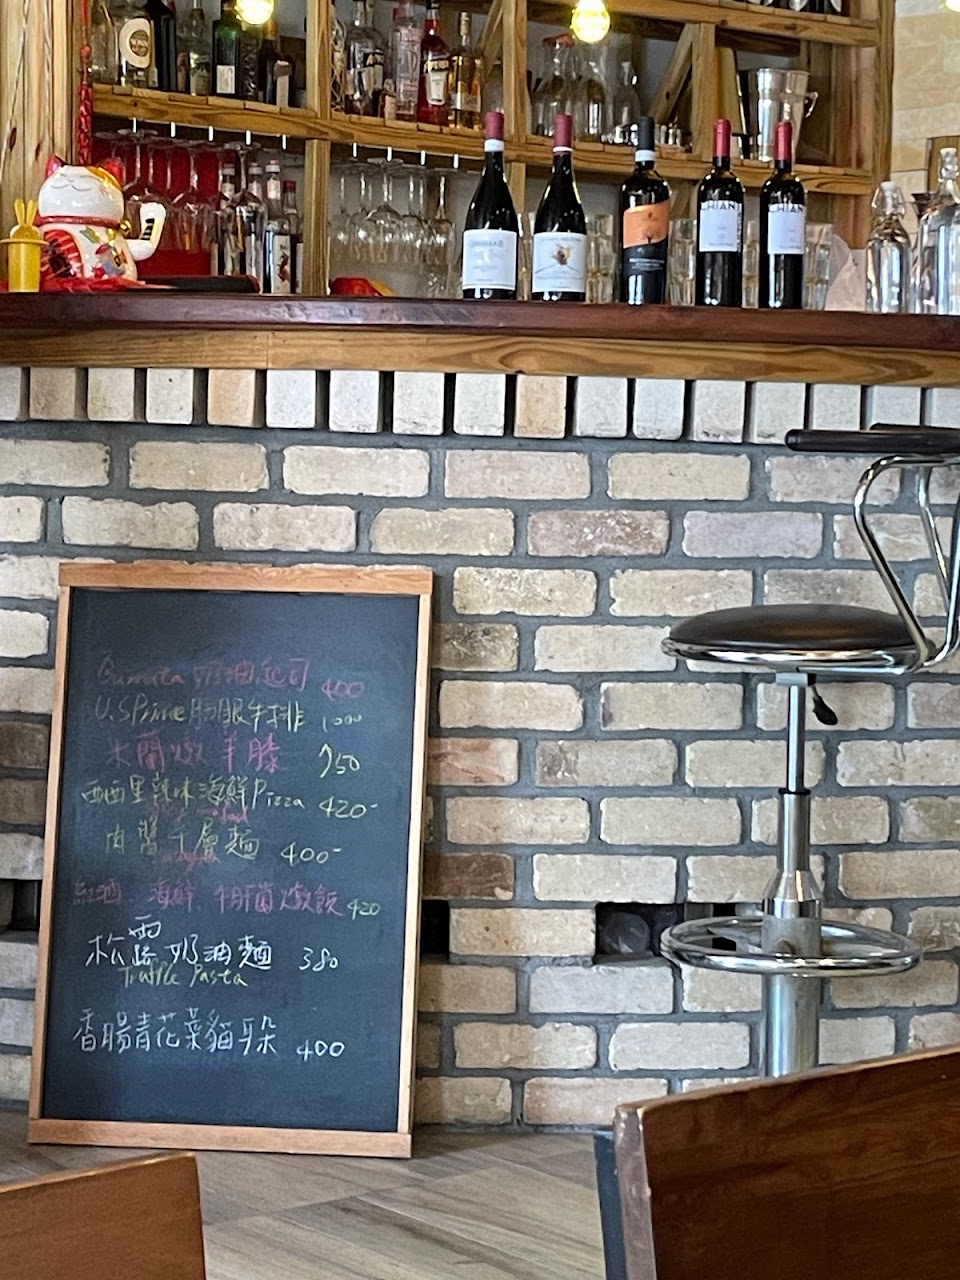 CHIANTI
CHIANTI
Burrata 奶油起司 400
U.S Prime 肋眼牛排 1000
米蘭燉羊膝 750
西西里辣味海鮮Pizza 420-
肉醬千層麵 400-
紅酒、海鮮、牛肝菌燉飯 420
松露奶油麵 380
Truffle Pasta
香腸青花菜貓耳朵 400